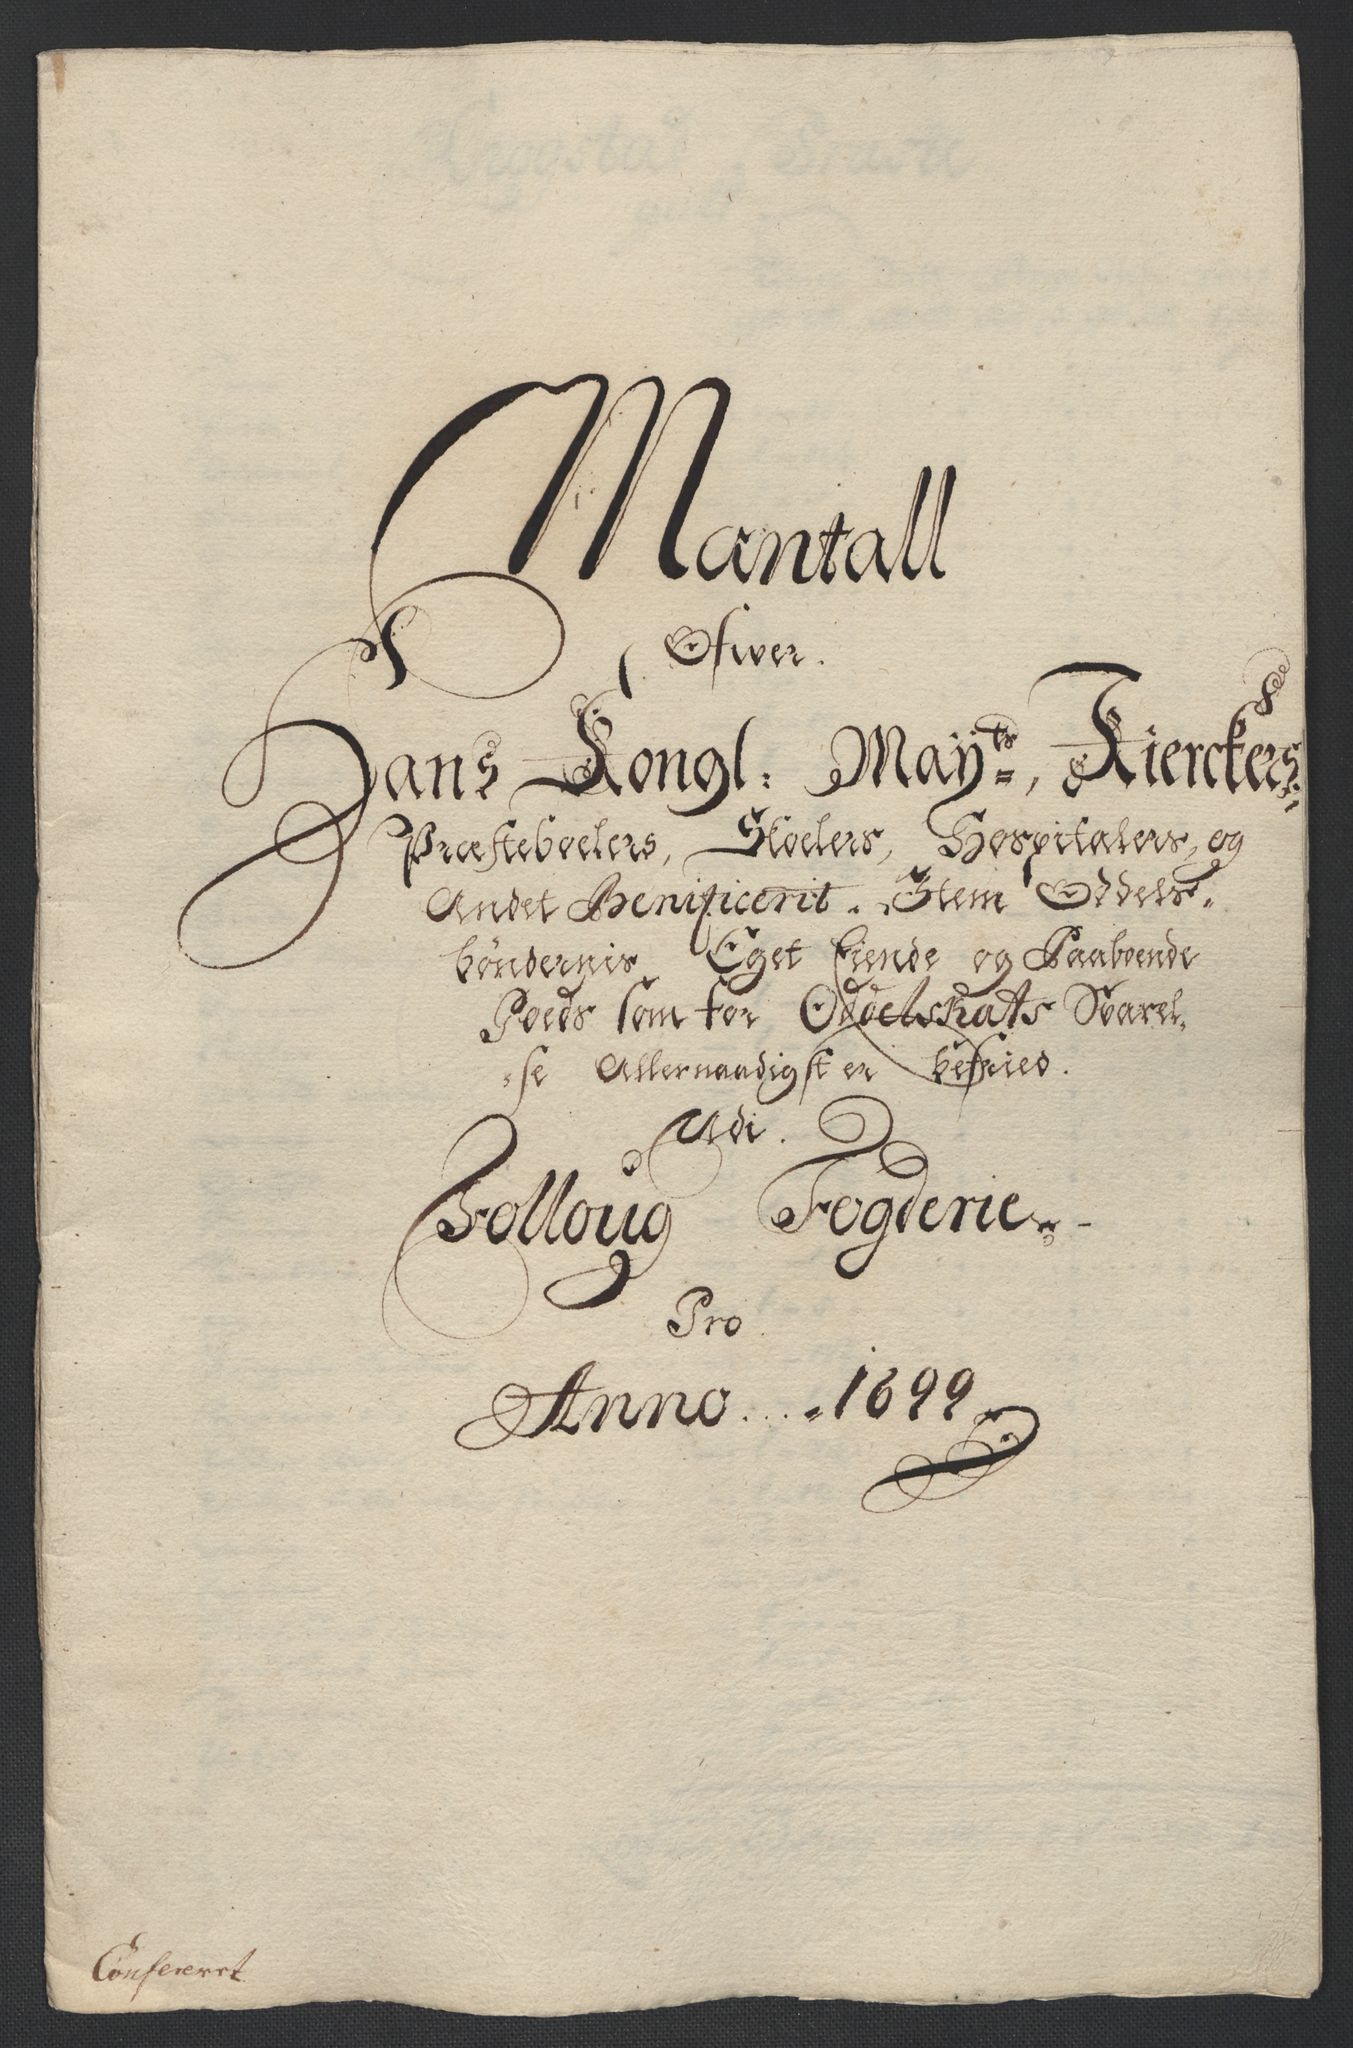 Mantall
Ofwer.
Hans Kongl: Maÿ^ts, Kierckers,
Præsteboelers, Skoelers, Hospitalers, og
Andet Benificerit. Item Oddels-
böndernis Eget Eiende og Paaboende
Goeds som for Oddelskats Svarel-
se Allernaadigst er befried.
Udi.
Folloug Fogderie
Pro
Anno . . . 1699
Confererret